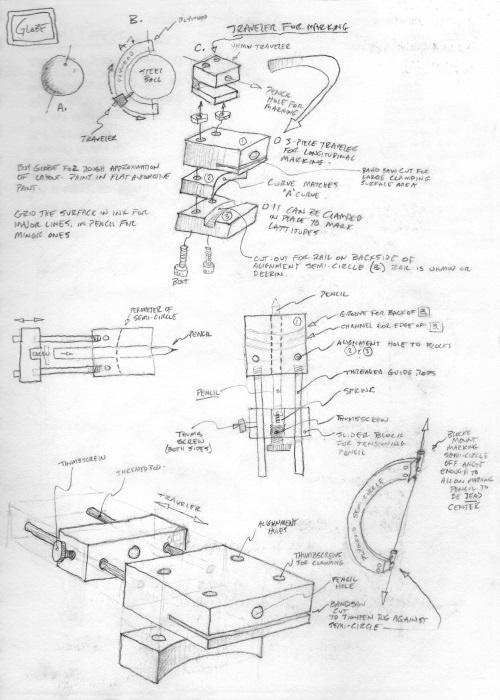 GLOBE
B.
C.
TRAVELER FOR MARKING
UHMW TRAVELER
STEEL
BALL
A.
TRAVELER
PENCIL
HOLE FOR
MARKING
BUY GLOBE FOR ROUGH APPROXIMATION
OF LAYOUT. PAINT IN FLAT AUTOMOTIVE
PAINT.
GRID THE SURFACE IN INK FOR
MAJOR LINES, IN PENCIL FOR
MINOR ONES
3-PIECE TRAVELER
FOR LONGITUDINAL
MARKING.
BAND SAW CUT FOR
LARGE CLAMPING
SURFACE AREA
CURVE MATCHES
"A" CURVE.
IT CAN BE CLAMPED
IN PLACE TO MARK
LATTITUDES
CUT-OUT FOR RAIL ON BACKSIDE OF
ALIGNMENT SEMI-CIRCLE (B.) RAIL IS UHMW OR
DELRIN.
1
2
3
BOLT
PERIMETER OF
SEMI-CIRCLE
PENCIL
PENCIL
1
GROOVE FOR BACK OF B
CHANNEL FOR EDGE OF B
ALIGNMENT HOLE TO BLOCKS
2 & 3
THREADED GUIDE RODS
PENCIL
SPRING
THUMBSCREW
THUMB
SCREW
(BOTH SIDES)
SLIDER BLOCK
FOR TENSIONING
PENCIL
BLOCKS
MOUNT
MARKING
SEMI-CIRCLE
OFF ANGLE
ENOUGH TO
ALLOW MARKING
PENCIL TO
BE DEAD
CENTER
THUMBSCREW
THREADED ROD
TRAVELER
ALIGNMENT
HOLES
THUMBSCREWS
FOR CLAMPING
PENCIL
HOLE
BANDSAW
CUT
TO TIGHTEN JIG AGAINST
SEMI-CIRCLE